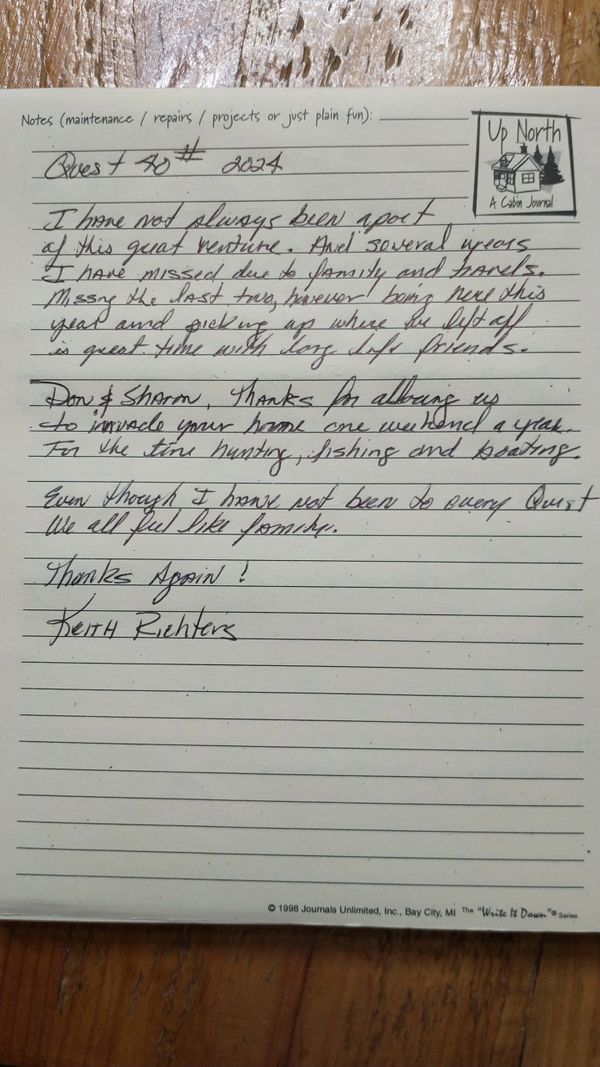 Notes (maintenance / repairs / projects or just plain fun):
Up North
A Cabin Journal
Quest 40# 2024
I have not always been apart
of this great venture. And several years
I have missed due to family and travels.
Missng the last two, however being here this
year and picking up where we left off
is great time with long life friends.
Don & Sharon, Thanks for allowing us
to invade your home one weekend a year.
For the time hunting, fishing and boating.
Even though I have not been to every Quest
We all feel like family.
Thanks Again !
Keith Richters
© 1998 Journals Unlimited, Inc., Bay City, MI The "Write It Down"® Series